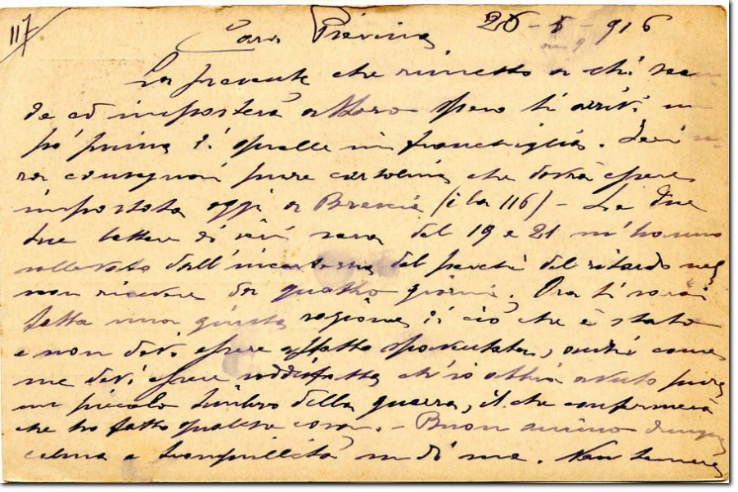 117
Cara Pierina 25-5-916
La presente che rimetto a chi scen
de ed imposterà a Storo spero ti arrivi un
po' prima di quelle in franchigia. Ieri se
ra consegnai pure cartolina che dovrà essere
impostata oggi a Brescia (è la 116) - Le due
tue lettere di ieri sera del 19 e 21 m'hanno
sollevato dall'incertezza del perchè del ritardo nel
non ricevere da quattro giorni. Ora ti sarai
fatta una giusta ragione di ciò che è stato
e non devi essere affatto spaventata, anzi come
me devi essere soddisfatta ch'io abbia avuto pure
un piccolo timbro della guerra, il che confermerà
che ho fatto qualche cosa. - Buon animo dunque
calma e tranquillità in di me. Non temere